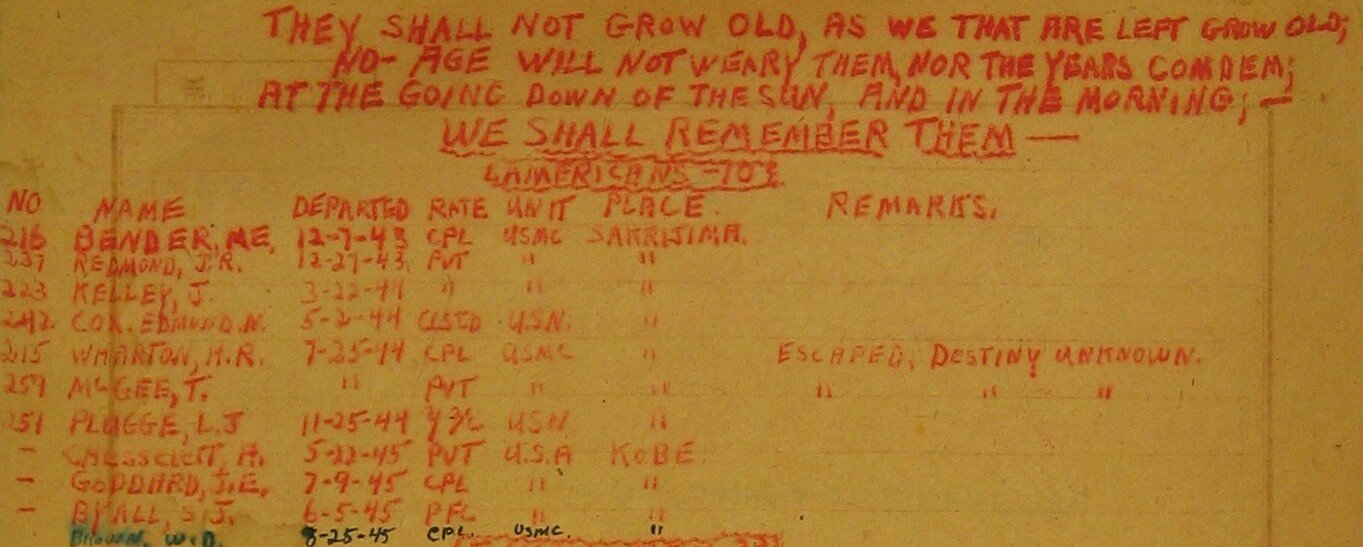 THEY SHALL NOT GROW OLD, AS WE THAT ARE LEFT GROW OLD;
NO- AGE WILL NOT WEARY THEM, NOR THE YEARS COMDEM;
AT THE GOING DOWN OF THE SUN, AND IN THE MORNING; —
WE SHALL REMEMBER THEM —
AMERICANS
NO NAME DEPARTED RATE UNIT PLACE. REMARKS.
216 BENDER, M.E. 12-7-43 CPL USMC SAKRIJIMA.
237 REDMOND, J.R. 12-27-43 PVT " "
223 KELLEY, J. 3-22-44 " "  "
242 COX. EDMUND.N. 5-2-44 U.S.N. "
215 WHARTON, H.R. 7-25-44 CPL USMC " ESCAPED, DESTINY UNKNOWN.
259 MCGEE, T. " PVT " " " " "
251 PLOGGE, L.J 11-25-44 USN "
- 5-22-45 PVT U.S.A KOBE.
- GODDARD, J.E. 7-9-45 CPL " "
- BYALL, S.J. 6-5-45 PFC " "
BROWN, W.D. 8-25-45 CPL. USMC. "